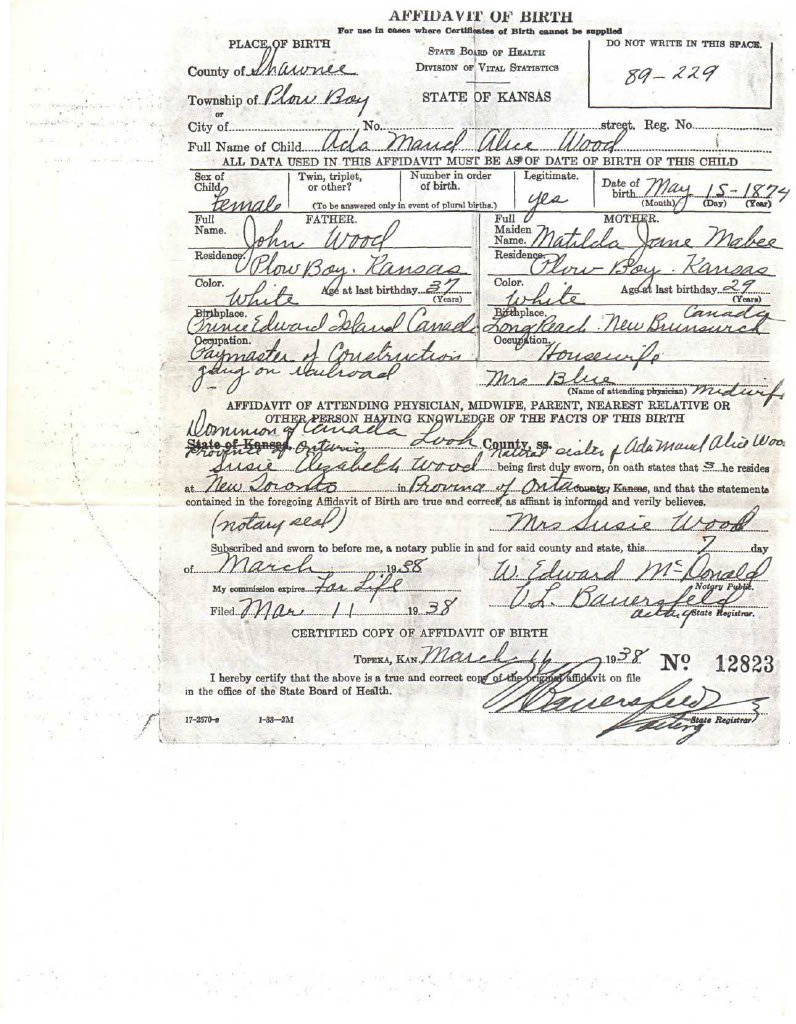 AFFIDAVIT OF BIRTH
For use in cases where Certificates of Birth cannot be supplied
PLACE OF BIRTH
STATE BOARD OF HEALTH
DO NOT WRITE IN THIS SPACE.
County of Shawnee
DIVISION OF VITAL STATISTICS
89-229
Township of Plow Boy
STATE OF KANSAS
or
City of No. street. Reg. No.
Full Name of Child Ada Maud Alice Wood
ALL DATA USED IN THIS AFFIDAVIT MUST BE AS OF DATE OF BIRTH OF THIS CHILD
Sex of Child Female
Twin, triplet, or other?
Number in order of birth.
(To be answered only in event of plural births.)
Legitimate. yes
Date of birth May 15-1874
(Month) (Day) (Year)
FATHER.
Full Name. John Wood
Residence. Plow Boy. Kansas
Color. White Age at last birthday 37
(Years)
Birthplace. Prince Edward Island Canada
Occupation. Paymaster of Construction
gang on railroad
MOTHER.
Full Maiden Name. Matilda Jane Mabee
Residence. Plow Boy. Kansas
Color. White Age at last birthday 29
(Years)
Canada
Birthplace. Long Reach. New Brunswick
Occupation. Housewife
Mrs Blue midwife
(Name of attending physician)
AFFIDAVIT OF ATTENDING PHYSICIAN, MIDWIFE, PARENT, NEAREST RELATIVE OR
OTHER PERSON HAVING KNOWLEDGE OF THE FACTS OF THIS BIRTH
Dominion of Canada
State of Kansas, County, ss.
Province of Ontario natural sister of Ada Maud Alice Wood
Susie Elizabeth Wood being first duly sworn, on oath states that s he resides
at New Toronto in Province of Ontario County, Kansas, and that the statements
contained in the foregoing Affidavit of Birth are true and correct, as affiant is informed and verily believes.
(notary seal) Mrs Susie Wood
Subscribed and sworn to before me, a notary public in and for said county and state, this 7 day
of March 1938 W. Edward McDonald
My commission expires For Life Notary Public.
Filed Mar 11 1938 Bauersfeld
acting State Registrar.
CERTIFIED COPY OF AFFIDAVIT OF BIRTH
TOPEKA, KAN. March 1938 No 12823
I hereby certify that the above is a true and correct copy of the original affidavit on file
in the office of the State Board of Health.
Bauersfeld
State Registrar
acting
17-2570-s 1-38-2M